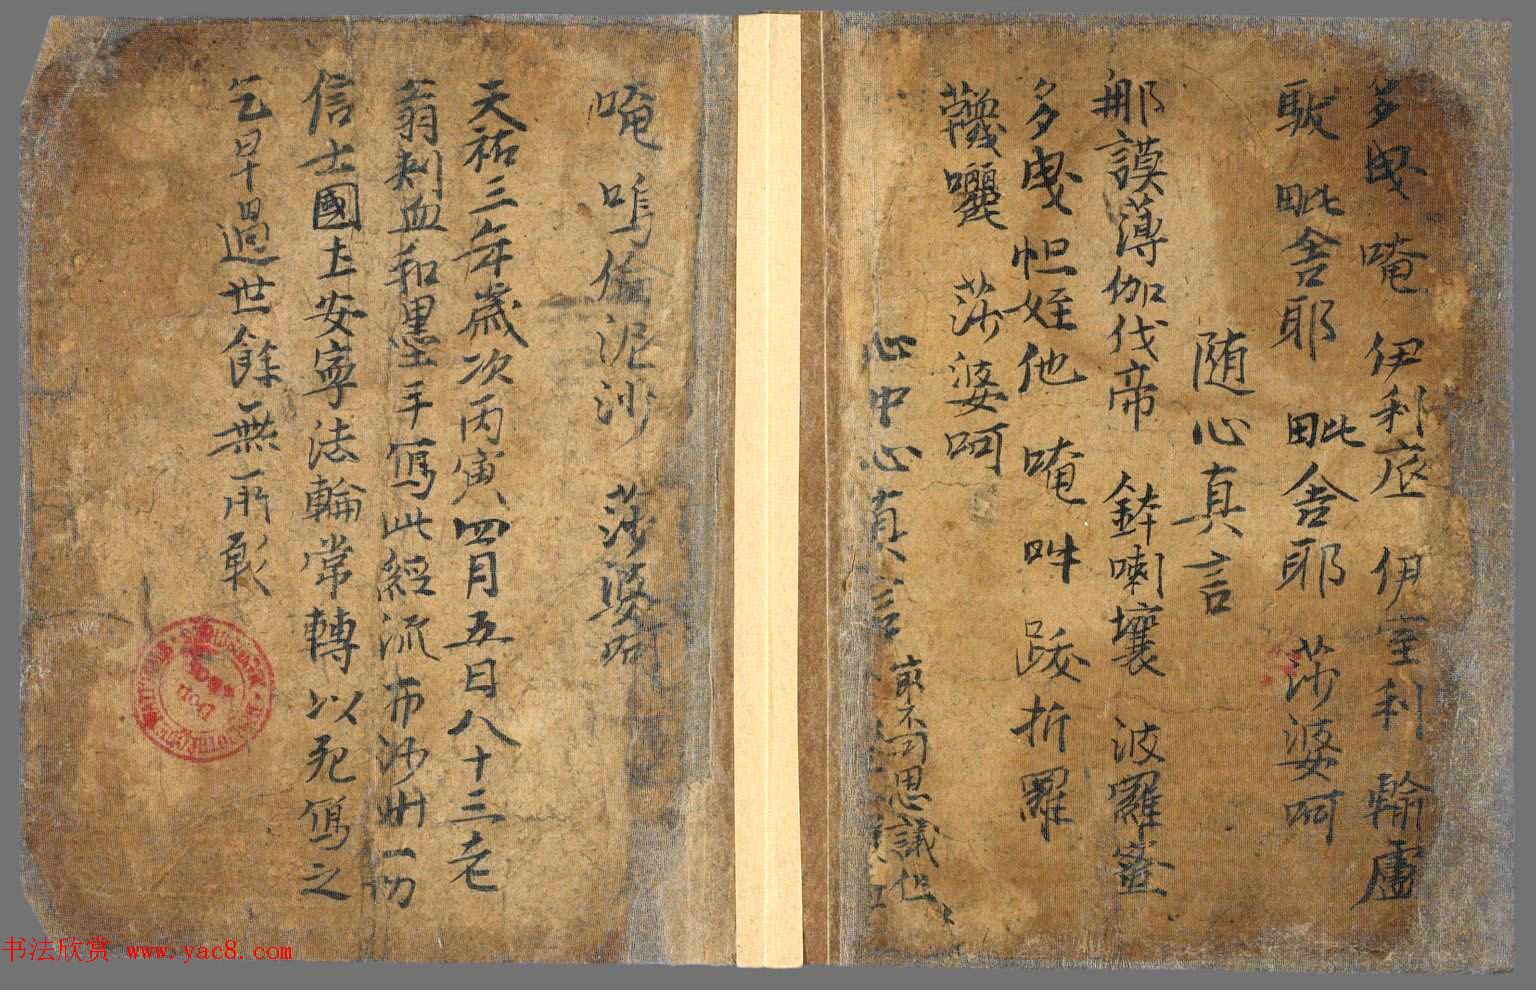 多曳 唵 伊利底 伊室利 輸盧
馱 毗舍耶 毗舍耶 莎婆呵
随心真言
那謨薄伽伐帝 鉢喇壤 波羅蜜
多曳 怛姪他 唵 吽 跋折羅
莎婆呵
心中心真言 衆不可思議也
唵 嗚倫泥沙 莎婆呵
天祐三年歲次丙寅四月五日八十三老
翁刺血和墨手寫此經流布沙州一切
信士國土安寧法輪常轉以死寫之
乞早過世餘無所彰
书法欣赏 www.yac8.com